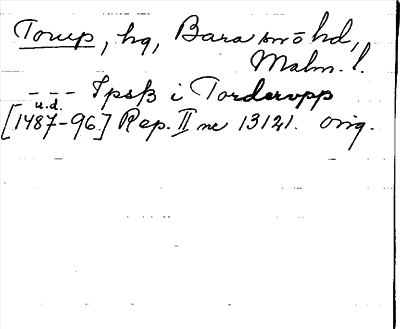 Torup, hg, Bara sn o hd,
Malm. l.
--- Ipsß i Tordervpp
u.d.
[1487-96] Rep. II nr 13121. orig.